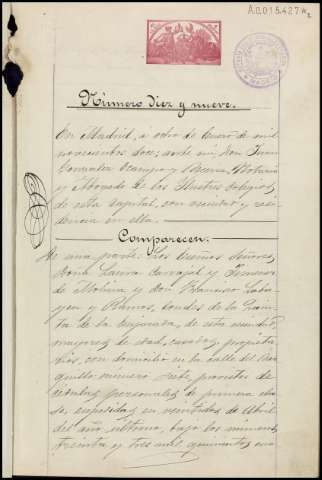 A.0.015.427
Número diez y nueve.
En Madrid, a ocho de Enero de mil
novecientos doce; ante mí, Don Juan
González Ocampo y Notario
y Abogado de los Ilustres Colegios
de esta Capital, con vecindad y resi-
dencia en ella.
Comparecen:
De una parte: Los Excmos Señores,
Doña Laura Carvajal y
de Molina y don Francisco
y Ramos, Condes de la Quin-
ta de la Enjarada, de esta vecindad,
mayores de edad, casados, propieta-
rios, con domicilio en la calle del Bar-
quillo número siete, provistos de
cédulas personales de primera cla-
se, expedidas en veintidos de Abril
del año último, bajo los números
treinta y tres mil quinientos cua